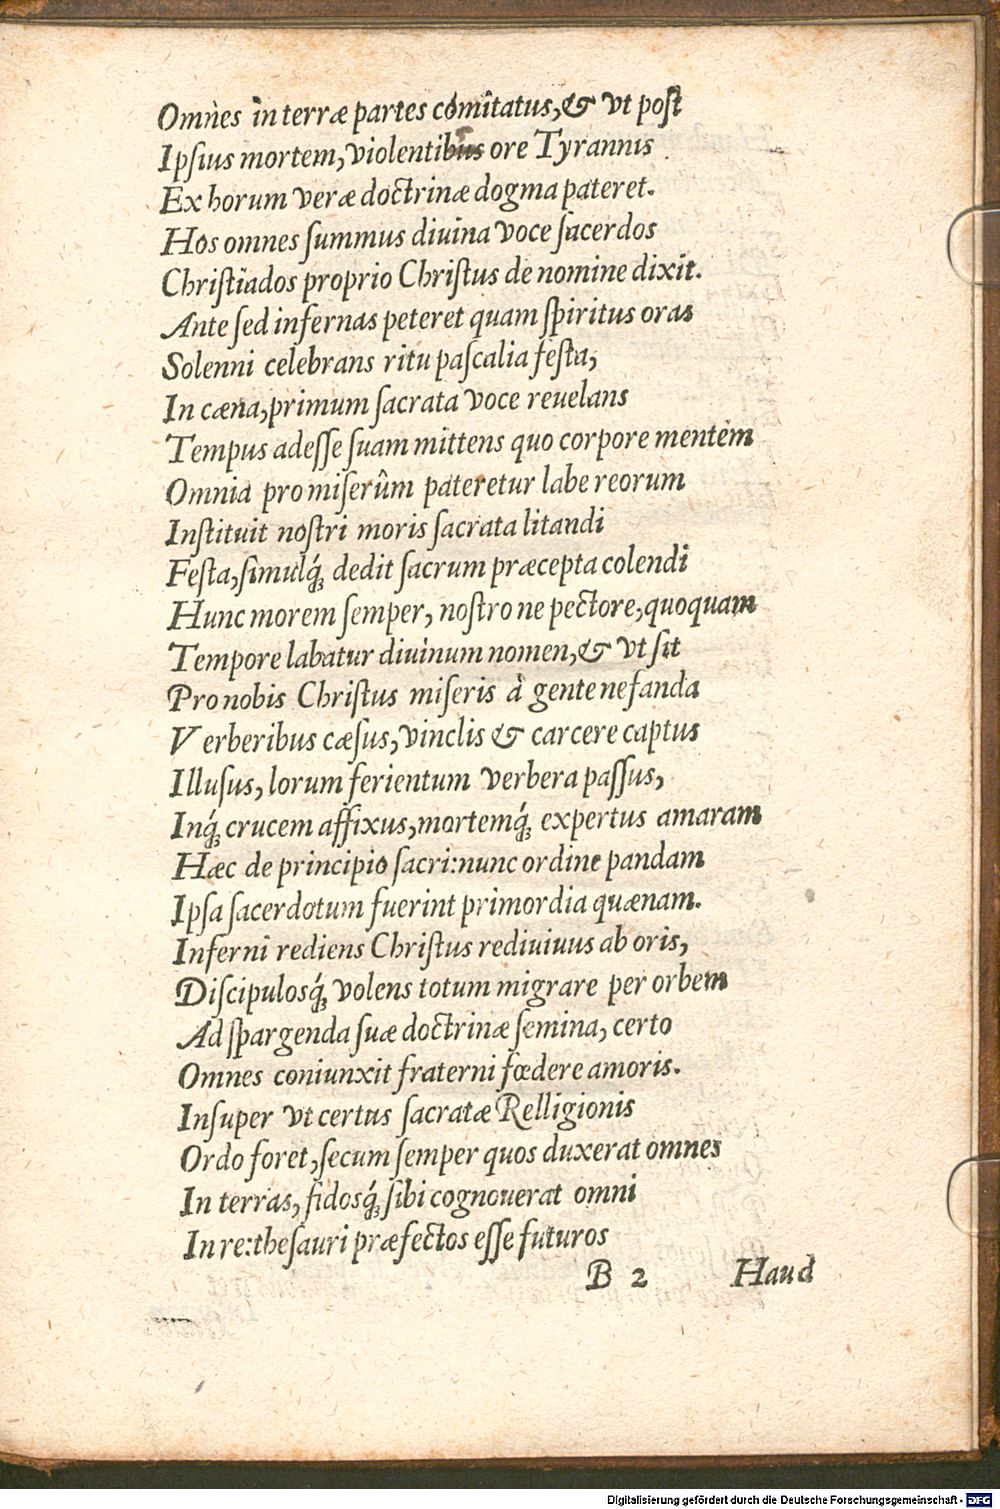 Omnes in terræ partes comitatus, & vt post
Ipsius mortem, violentibus ore Tyrannis
Ex horum veræ doctrinæ dogma pateret.
Hos omnes summus diuina voce sacerdos
Christiados proprio Christus de nomine dixit.
Ante sed infernas peteret quam spiritus oras
Solenni celebrans ritu pascalia festa,
In cæna, primum sacrata voce reuelans
Tempus adesse suam mittens quo corpore mentem
Omnia pro miserûm pateretur labe reorum
Instituit nostri moris sacrata litandi
Festa, simulq́; dedit sacrum præcepta colendi
Hunc morem semper, nostro ne pectore, quoquam
Tempore labatur diuinum nomen, & vt sit
Pro nobis Christus miseris à gente nefanda
Verberibus cæsus, vinclis & carcere captus
Illusus, lorum ferientum verbera passus,
Inq́; crucem affixus, mortemq́; expertus amaram
Hæc de principio sacri: nunc ordine pandam
Ipsa sacerdotum fuerint primordia quænam.
Inferni rediens Christus rediuiuus ab oris,
Discipulosq́; volens totum migrare per orbem
Ad spargenda suæ doctrinæ semina, certo
Omnes coniunxit fraterni fœdere amoris.
Insuper vt certus sacratæ Relligionis
Ordo foret, secum semper quos duxerat omnes
In terras, fidosq́; sibi cognouerat omni
In re: thesauri præfectos esse futuros
B 2 Haud
Digitalisierung gefördert durch die Deutsche Forschungsgemeinschaft - DFG